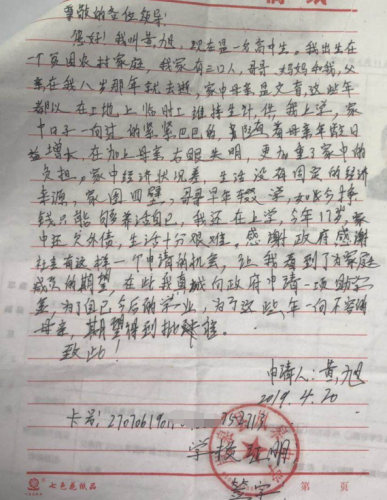 尊敬的各位领导:
您好!我叫黄旭,现在是一名高中生。我出生在
一个贫困农村家庭,我家有三口人,哥哥、妈妈和我,父
亲在我八岁那年就去逝,家中母亲是文盲,这些年
都以在工地上临时工维持生计,供我上学,家
中日子一向过的紧紧巴巴的,
益增长,在加上母亲右眼失明,更加重了家中的
负担。家中经济状况差,生活没有固定的经济
来源,家困四壁,哥哥早年辍学,如今
钱只能够养活自己,我还在上学,今年17岁,家
中还欠外债,生活十分艰难。感谢政府感谢
有这样一个申请的机会,让我看到了为家庭
减负的期望,在此我真诚向政府申请一项助学
金,为了自己今后的学业,为了这些年一向不容易的
母亲,期望得到批准。
致此!
申请人:黄旭
2019.4.20
卡号:
学校证明
第 页
七色花纸品